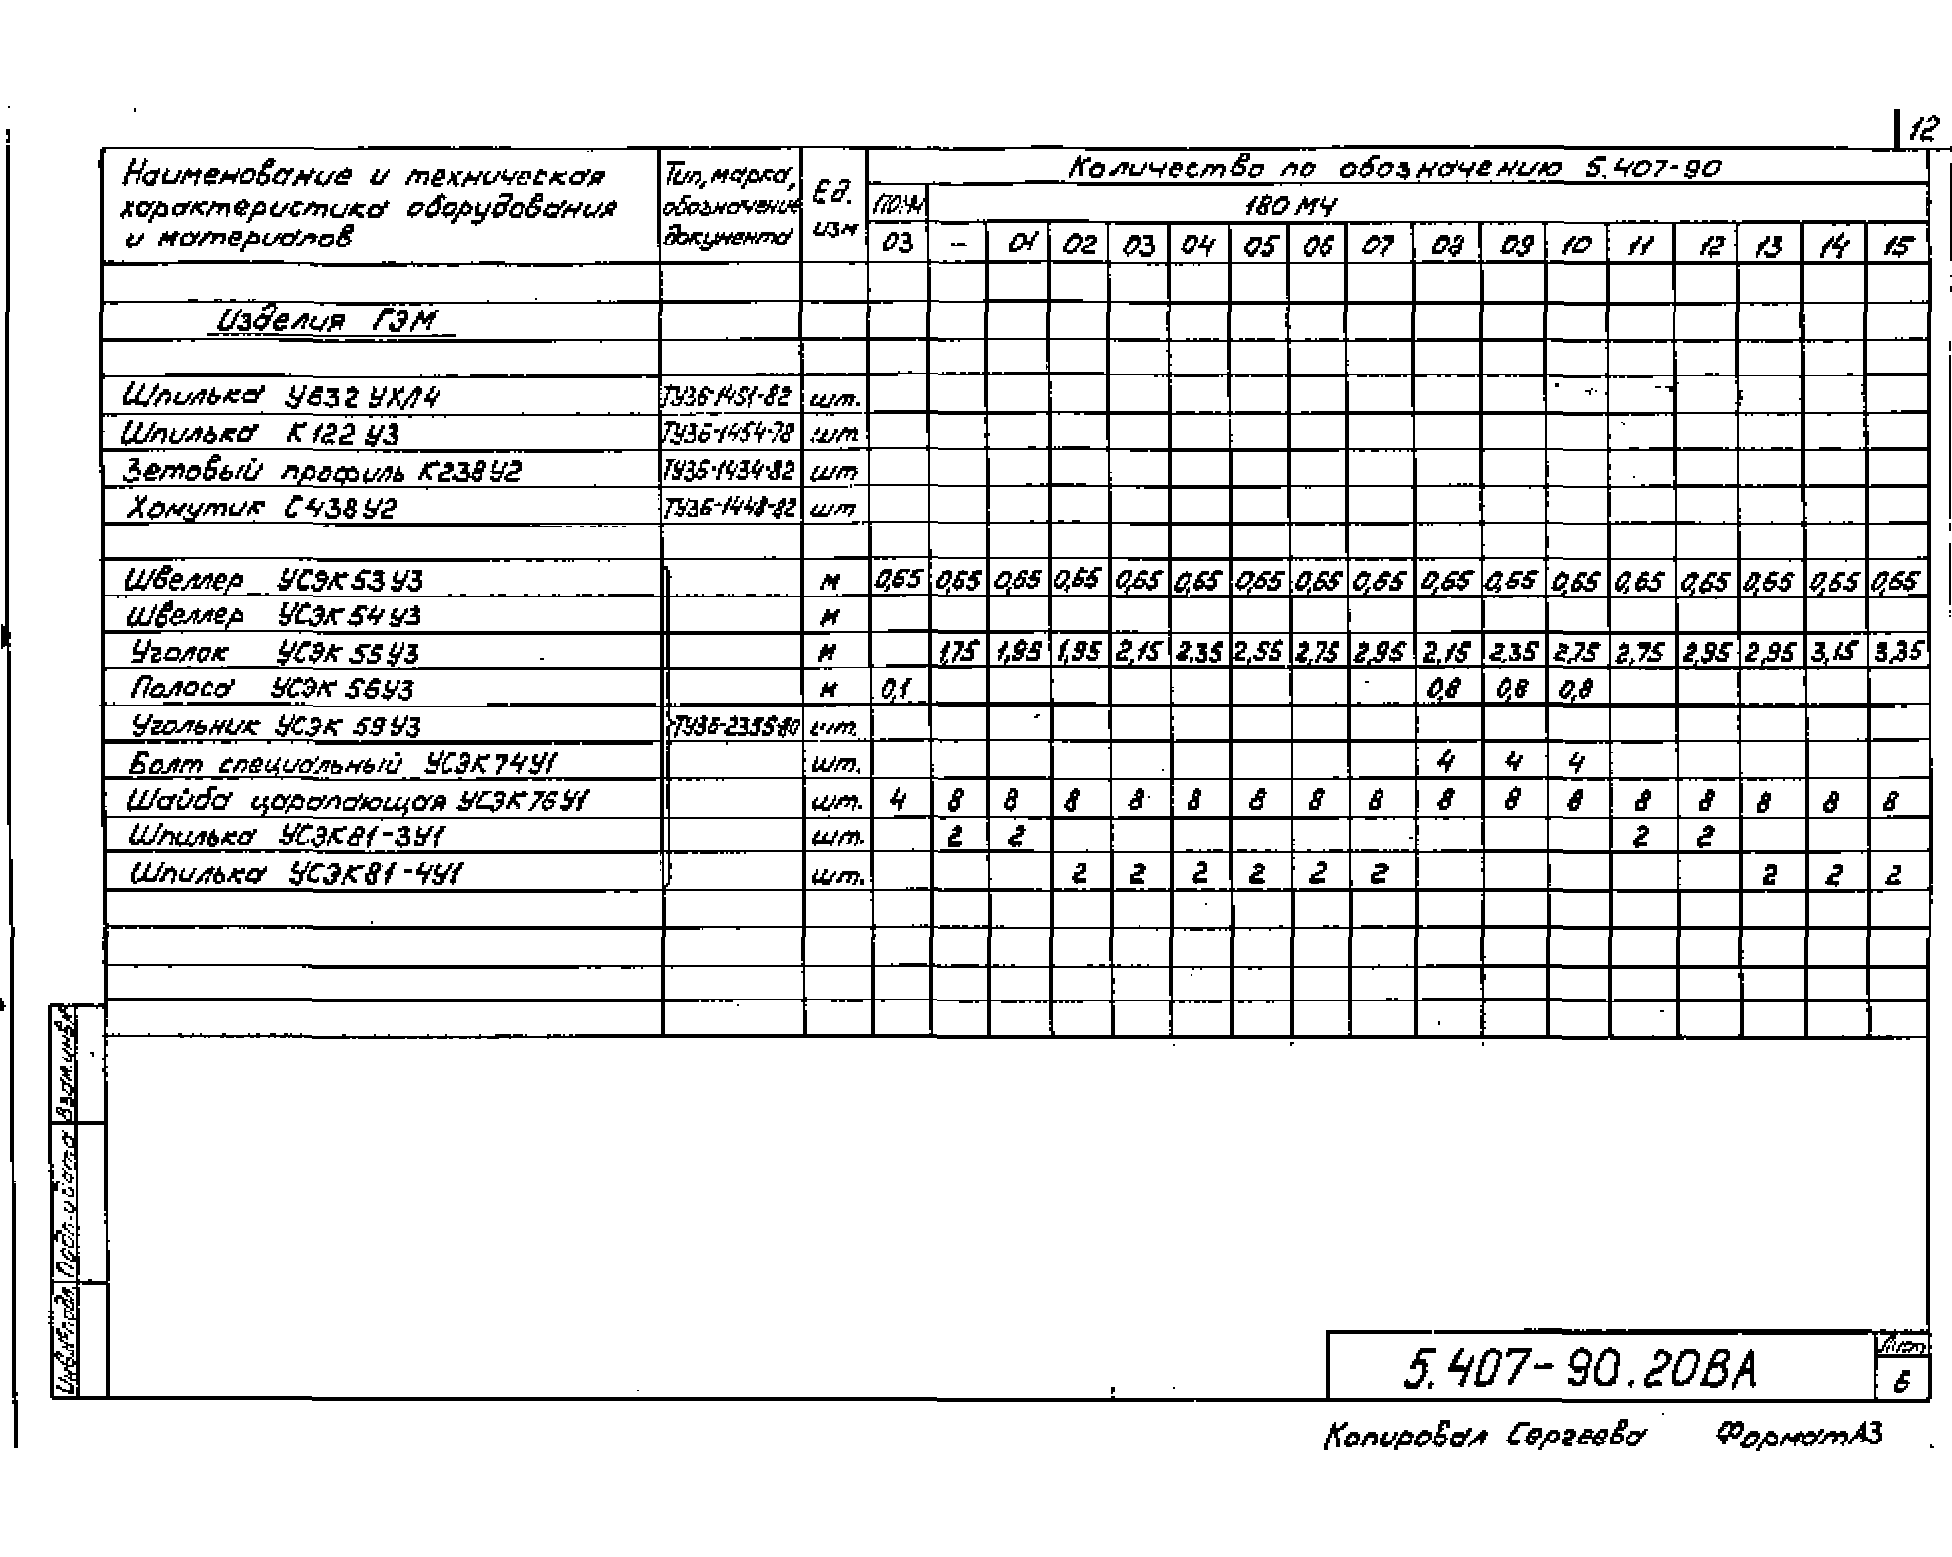 12
Наименование и техническая характеристика оборудования и материалов | Тип, марка, обозначение документа | Ед. изм | Количество по обозначению 5.407-90
180МЧ
03 | – | 01 | 02 | 03 | 04 | 05 | 06 | 07 | 08 | 09 | 10 | 11 | 12 | 13 | 14 | 15
Изделия ГЭМ
Шпилька У632 УХЛ4 | ТУ36-1451-82 | шт.
Шпилька К122 У3 | ТУ36-1454-78 | шт
Зетовый профиль К238У2 | ТУ36-1434-82 | шт
Хомутик С438У2 | ТУ36-1448-82 | шт
Швеллер УСЭК 53 У3 | м | 0,65 | 0,65 | 0,65 | 0,65 | 0,65 | 0,65 | 0,65 | 0,65 | 0,65 | 0,65 | 0,65 | 0,65 | 0,65 | 0,65 | 0,65 | 0,65 | 0,65
Швеллер УСЭК 54 У3 | м
Уголок УСЭК 55 У3 | м | 1,75 | 1,95 | 1,95 | 2,15 | 2,35 | 2,55 | 2,75 | 2,95 | 2,15 | 2,35 | 2,75 | 2,75 | 2,95 | 2,95 | 3,15 | 3,35
Полоса УСЭК 56У3 | м | 0,1 | 0,8 | 0,8 | 0,8
Угольник УСЭК 59У3 | шт.
Болт специальный УСЭК74У1 | шт. | 4 | 4 | 4
Шайба царапающая УСЭК76У1 | шт. | 4 | 8 | 8 | 8 | 8 | 8 | 8 | 8 | 8 | 8 | 8 | 8 | 8 | 8 | 8 | 8 | 8
Шпилька УСЭК81-3У1 | шт. | 2 | 2 | 2 | 2
Шпилька УСЭК81-4У1 | шт. | 2 | 2 | 2 | 2 | 2 | 2 | 2 | 2 | 2
Взам.инв.№
Подп. и дата
Инв.№ подл.
5.407-90.20ВА
Лист
6
Копировал Сергеева Формат А3